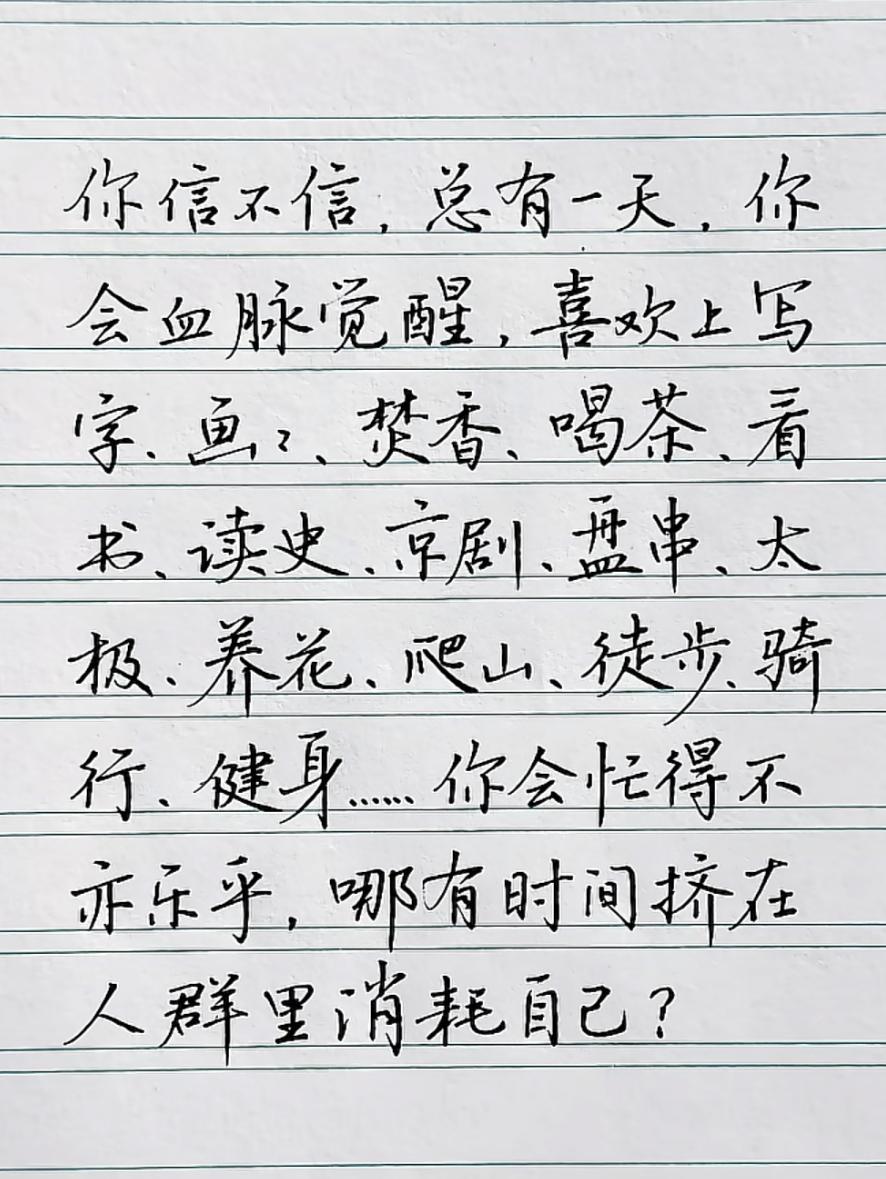 你信不信，总有一天，你
会血脉觉醒，喜欢上写
字、画々、焚香、喝茶、看
书、读史、京剧、盘串、太
极、养花、爬山、徒步、骑
行、健身……你会忙得不
亦乐乎，哪有时间挤在
人群里消耗自己？